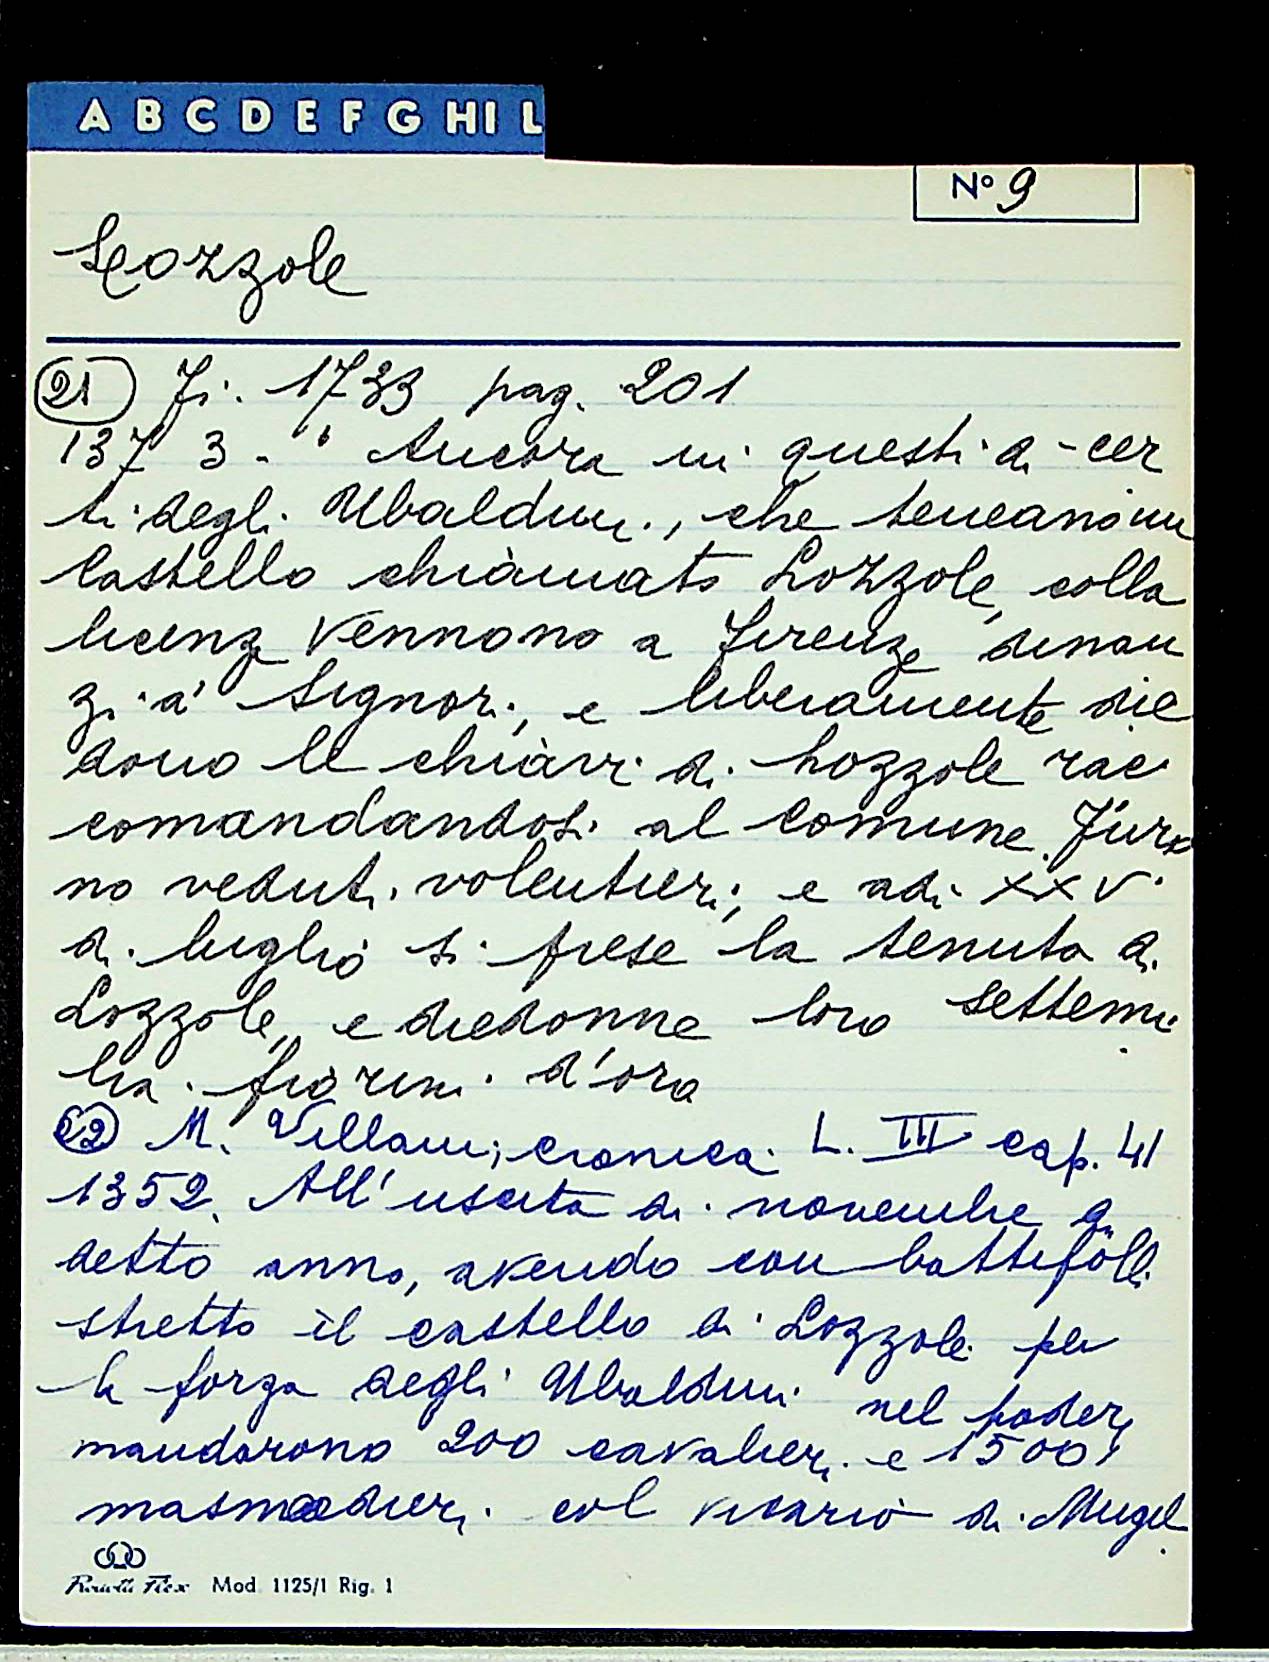 A B C D E F G H I L
N° 9
Lozzole
21 Fi. 1733 pag. 201
1373 - " Ancora in questi dì - cer
ti degli Ubaldini, che teneano un
Castello chiamato Lozzole, colla
licenza vennono a Firenze dinan
zi a' Signori, e liberamente die
dono le chiavi di Lozzole rac
comandandosi al Comune. Furo
no veduti volentieri; e adì XXV
di luglio si prese la tenuta di
Lozzole, e diedonne loro settemi
lia fiorini d'oro
22 M. Villani; cronica. L. III cap. 41
1352. All'uscita di novembre di
detto anno, avendo con battifolli
stretto il castello di Lozzole per
la forza degli Ubaldini nel podere,
mandarono 200 cavalieri e 1500
masnadieri col vicario di Mugel
Mod. 1125/1 Rig. 1